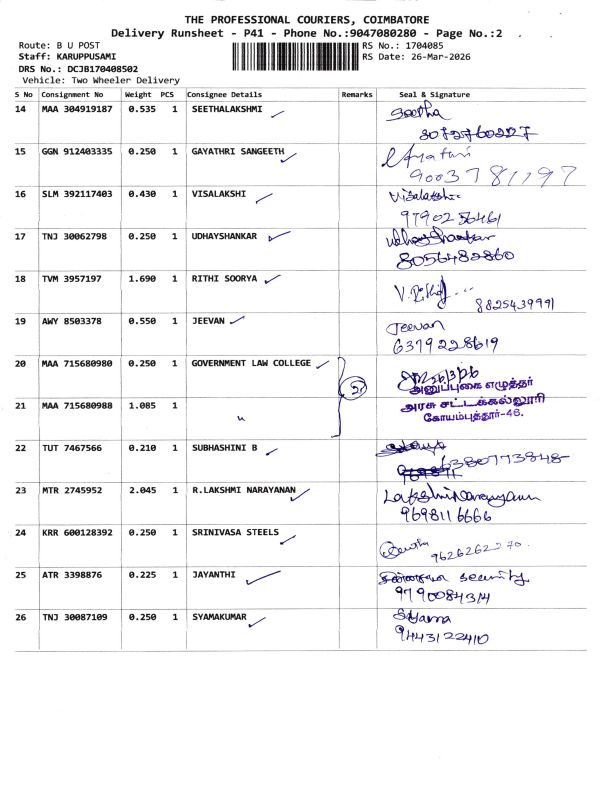 THE PROFESSIONAL COURIERS, COIMBATORE
Delivery Runsheet - P41 - Phone No.:9047080280 - Page No.:2
Route: B U POST
RS No.: 1704085
Staff: KARUPPUSAMI
RS Date: 26-Mar-2026
DRS No.: DCJB170408502
Vehicle: Two Wheeler Delivery
S No Consignment No Weight PCS Consignee Details Remarks Seal & Signature
14 MAA 304919187 0.535 1 SEETHALAKSHMI Seetha
15 GGN 912403335 0.250 1 GAYATHRI SANGEETH Gayatri
9003781197
16 SLM 392117403 0.430 1 VISALAKSHI Visalakshi
9790256461
17 TNJ 30062798 0.250 1 UDHAYSHANKAR
8056482860
18 TVM 3957197 1.690 1 RITHI SOORYA
8825439991
19 AWY 8503378 0.550 1 JEEVAN Jeevan
6379228619
20 MAA 715680980 0.250 1 GOVERNMENT LAW COLLEGE 2 26/3/26
அனுப்புகை எழுத்தர்
21 MAA 715680988 1.085 1 " அரசு சட்டக்கல்லூரி
கோயம்புத்தூர்-46.
22 TUT 7467566 0.210 1 SUBHASHINI B
6380773848
23 MTR 2745952 2.045 1 R.LAKSHMI NARAYANAN Lakshminarayanan
9698116666
24 KRR 600128392 0.250 1 SRINIVASA STEELS
9626262270.
25 ATR 3398876 0.225 1 JAYANTHI security
9790084314
26 TNJ 30087109 0.250 1 SYAMAKUMAR Syama
9443122410